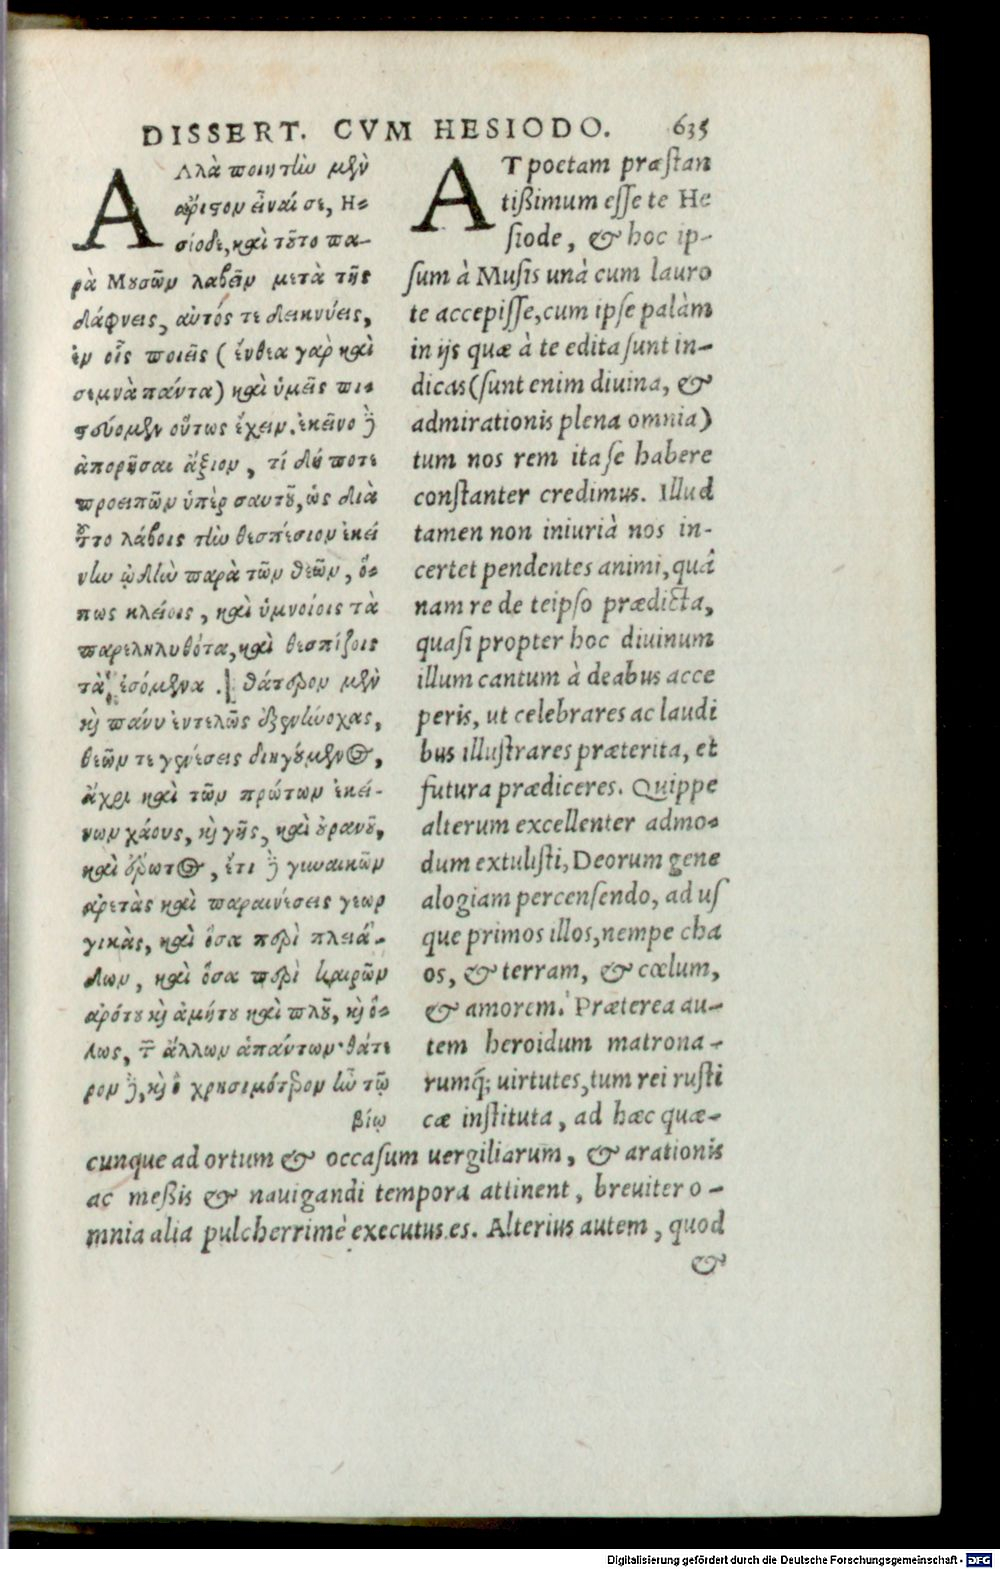 DISSERT. CVM HESIODO. 635
Αλλὰ ποιητὴν μὲν
ἄριστον εἶναί σε, Ἡ-
σίοδε, καὶ τοῦτο πα-
ρὰ Μουσῶν λαβεῖν μετὰ τῆς
δάφνης, αὐτός τε δεικνύεις,
ἐν οἷς ποιεῖς (ἔνθεα γὰρ καὶ
σεμνὰ πάντα) καὶ ὑμεῖς πι-
στεύομεν οὕτως ἔχειν. ἐκεῖνο δὲ
ἀπορῆσαι ἄξιον, τί δή ποτε
προειπῶν ὑπὲρ σαυτοῦ, ὡς διὰ
τοῦτο λάβοις τὴν θεσπέσιον ἐκεί
νην ᾠδὴν παρὰ τῶν θεῶν, ὅ-
πως κλείοις, καὶ ὑμνοίοις τὰ
παρεληλυθότα, καὶ θεσπίζοις
τὰ ἐσόμενα. θάτερον μὲν
καὶ πάνυ ἐντελῶς ἐξενήνοχας,
θεῶν τε γενέσεις διηγούμενος,
ἄχρι καὶ τῶν πρώτων ἐκεί-
νων χάους, καὶ γῆς, καὶ οὐρανοῦ,
καὶ ἔρωτος, ἔτι δὲ γυναικῶν
ἀρετὰς καὶ παραινέσεις γεωρ
γικὰς, καὶ ὅσα περὶ πλειά-
δων, καὶ ὅσα περὶ καιρῶν
ἀρότου καὶ ἀμήτου καὶ πλοῦ, καὶ ὅ-
λως, τῶν ἄλλων ἁπάντων· θάτε
ρον δὲ, καὶ ὃ χρησιμότερον ἦν τῷ
βίῳ
AT poetam præstan
tißimum esse te He
siode, & hoc ip-
sum à Musis unà cum lauro
te accepisse, cum ipse palàm
in ijs quæ à te edita sunt in-
dicas (sunt enim diuina, &
admirationis plena omnia)
tum nos rem ita se habere
constanter credimus. Illud
tamen non iniurià nos in-
certet pendentes animi, quâ
nam re de teipso prædicta,
quasi propter hoc diuinum
illum cantum à deabus acce
peris, ut celebrares ac laudi
bus illustrares præterita, et
futura prædiceres. Quippe
alterum excellenter admo-
dum extulisti, Deorum gene
alogiam percensendo, ad us
que primos illos, nempe cha
os, & terram, & cœlum,
& amorem. Præterea au-
tem heroidum matrona-
rumq́; uirtutes, tum rei rusti
cæ instituta, ad hæc quæ-
cunque ad ortum & occasum uergiliarum, & arationis
ac meßis & nauigandi tempora attinent, breuiter o-
mnia alia pulcherrimè executus es. Alterius autem, quod
&
Digitalisierung gefördert durch die Deutsche Forschungsgemeinschaft - DFG